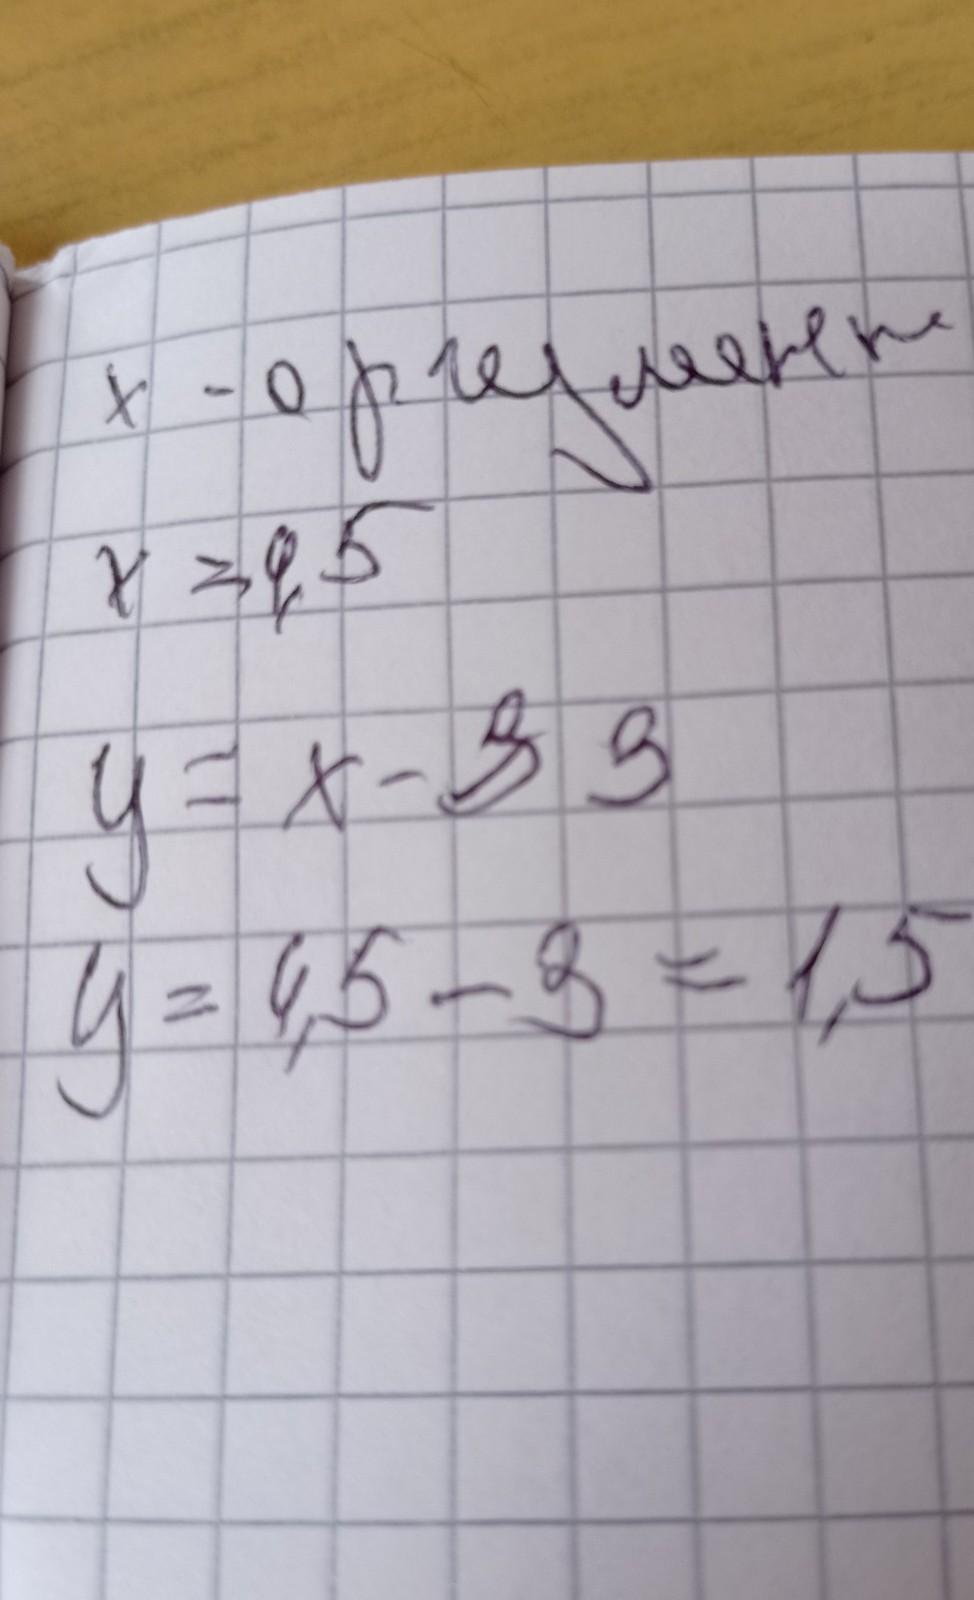 x - аргумент
x = 4,5
y = x - 3 3
y = 4,5 - 3 = 1,5